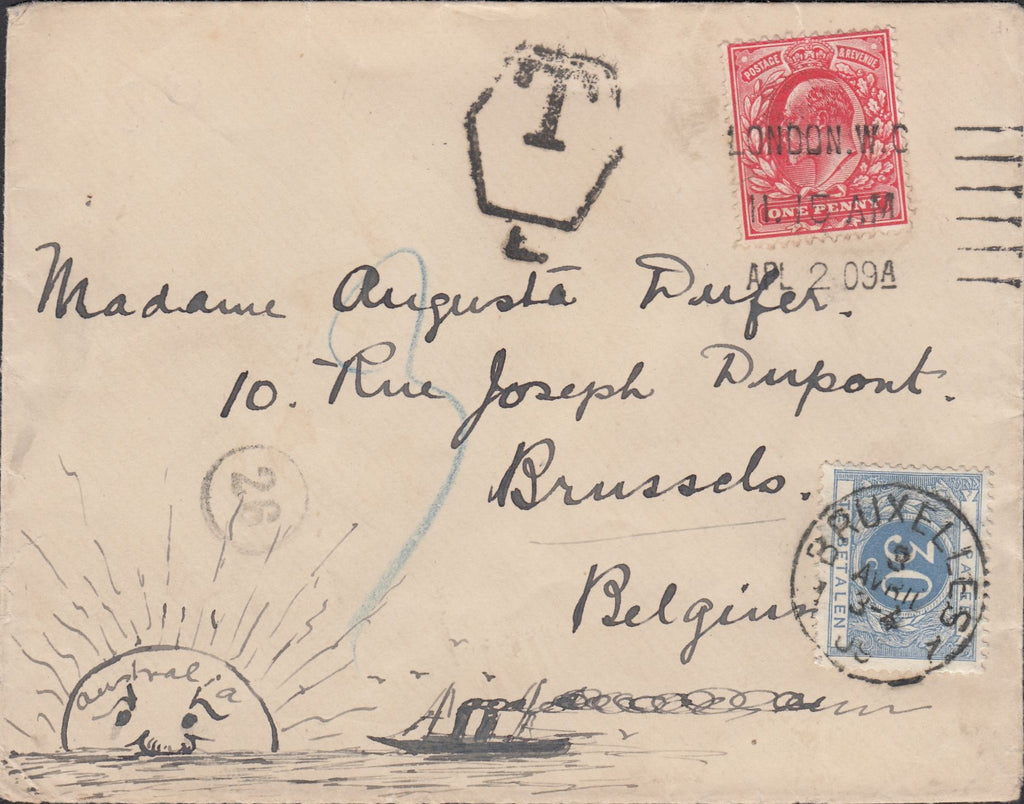 T
POSTAGE & REVENUE
LONDON.W.C
11.15 AM
ONE PENNY
APL 2 09A
Madame Augusta Dufer.
10. Rue Joseph Dupont.
Brussels.
Belgium
26
BRUXELLES
30
BETALEN
australia